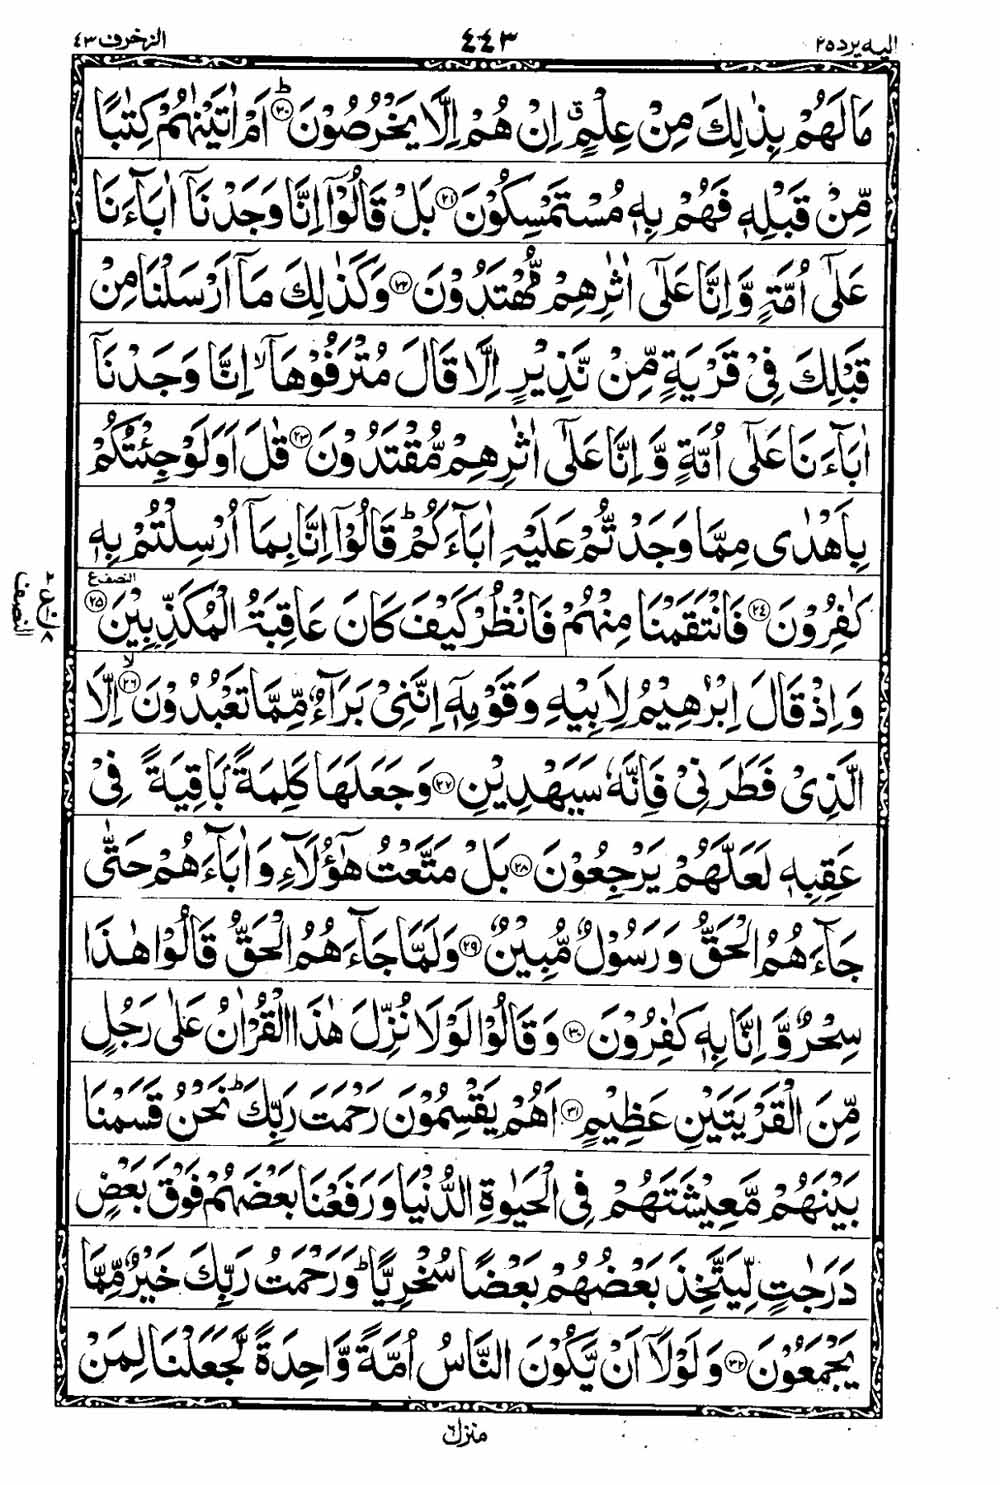 اليه يرد ٢٥
٤٤٣
الزخرف ٤٣
مَا لَهُمْ بِذٰلِكَ مِنْ عِلْمٍ ۗ اِنْ هُمْ اِلَّا يَخْرُصُوْنَ ﴿٢٠﴾ؕ اَمْ اٰتَيْنٰهُمْ كِتٰبًا
مِّنْ قَبْلِهٖ فَهُمْ بِهٖ مُسْتَمْسِكُوْنَ ﴿٢١﴾ بَلْ قَالُوْۤا اِنَّا وَجَدْنَاۤ اٰبَآءَنَا
عَلٰۤى اُمَّةٍ وَّ اِنَّا عَلٰۤى اٰثٰرِهِمْ مُّهْتَدُوْنَ ﴿٢٢﴾ وَ كَذٰلِكَ مَاۤ اَرْسَلْنَا مِنْ
قَبْلِكَ فِىْ قَرْيَةٍ مِّنْ نَّذِيْرٍ اِلَّا قَالَ مُتْرَفُوْهَاۤ ۙ اِنَّا وَجَدْنَاۤ
اٰبَآءَنَا عَلٰۤى اُمَّةٍ وَّ اِنَّا عَلٰۤى اٰثٰرِهِمْ مُّقْتَدُوْنَ ﴿٢٣﴾ قٰلَ اَوَلَوْ جِئْتُكُمْ
بِاَهْدٰى مِمَّا وَجَدْتُّمْ عَلَيْهِ اٰبَآءَكُمْ ؕ قَالُوْۤا اِنَّا بِمَاۤ اُرْسِلْتُمْ بِهٖ
كٰفِرُوْنَ ﴿٢٤﴾ فَانْتَقَمْنَا مِنْهُمْ فَانْظُرْ كَيْفَ كَانَ عَاقِبَةُ الْمُكَذِّبِيْنَ ﴿٢٥﴾ النصف ع
النصف
وَ اِذْ قَالَ اِبْرٰهِيْمُ لِاَبِيْهِ وَ قَوْمِهٖۤ اِنَّنِىْ بَرَآءٌ مِّمَّا تَعْبُدُوْنَ ﴿٢٦﴾ۙ اِلَّا
الَّذِىْ فَطَرَنِىْ فَاِنَّهٗ سَيَهْدِيْنِ ﴿٢٧﴾ وَ جَعَلَهَا كَلِمَةًۢ بَاقِيَةً فِىْ
عَقِبِهٖ لَعَلَّهُمْ يَرْجِعُوْنَ ﴿٢٨﴾ بَلْ مَتَّعْتُ هٰۤؤُلَآءِ وَ اٰبَآءَهُمْ حَتّٰى
جَآءَهُمُ الْحَقُّ وَ رَسُوْلٌ مُّبِيْنٌ ﴿٢٩﴾ وَ لَمَّا جَآءَهُمُ الْحَقُّ قَالُوْا هٰذَا
سِحْرٌ وَّ اِنَّا بِهٖ كٰفِرُوْنَ ﴿٣٠﴾ وَ قَالُوْا لَوْ لَا نُزِّلَ هٰذَا الْقُرْاٰنُ عَلٰى رَجُلٍ
مِّنَ الْقَرْيَتَيْنِ عَظِيْمٍ ﴿٣١﴾ اَهُمْ يَقْسِمُوْنَ رَحْمَتَ رَبِّكَ ؕ نَحْنُ قَسَمْنَا
بَيْنَهُمْ مَّعِيْشَتَهُمْ فِى الْحَيٰوةِ الدُّنْيَا وَ رَفَعْنَا بَعْضَهُمْ فَوْقَ بَعْضٍ
دَرَجٰتٍ لِّيَتَّخِذَ بَعْضُهُمْ بَعْضًا سُخْرِيًّا ؕ وَ رَحْمَتُ رَبِّكَ خَيْرٌ مِّمَّا
يَجْمَعُوْنَ ﴿٣٢﴾ وَ لَوْ لَاۤ اَنْ يَّكُوْنَ النَّاسُ اُمَّةً وَّاحِدَةً لَّجَعَلْنَا لِمَنْ
منزل ٦